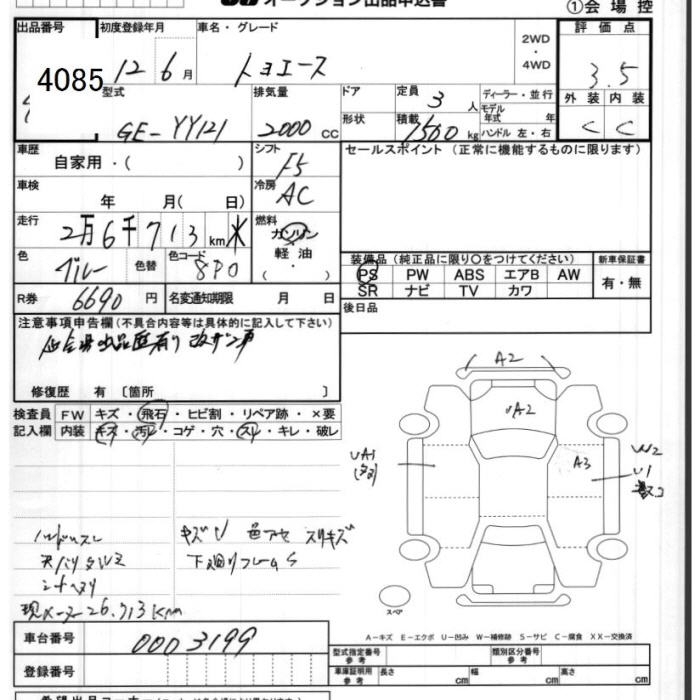 オークション出品申込書
①会場控
出品番号 初度登録年月 車名・グレード 評価点
4085 12 6月 トヨエース 2WD・4WD 3.5
型式 排気量 ドア 定員 3人 ディーラー・並行 外装 内装
GE-YY121 2000cc 形状 積載 1500kg モデル年式 年 ハンドル 左・右 C C
車歴 シフト セールスポイント（正常に機能するものに限ります）
自家用・( ) F5
車検 冷房
年 月( 日) AC
走行 燃料
2万6千713km ガソリン
軽油
( )
色 グレー 色替 色コード 8P0
装備品（純正品に限り○をつけてください） 新車保証書
PS PW ABS エアB AW 有・無
SR ナビ TV カワ
R券 6690円 名変通知期限 月 日
後日品
注意事項申告欄（不具合内容等は具体的に記入して下さい）
他会場出品歴有り
修復歴 有 〔箇所 〕
検査員 FW キズ・飛石・ヒビ割・リペア跡・×要
記入欄 内装 キズ・汚れ・コゲ・穴・スレ・キレ・破レ
A2
A2
UA1
A3
W2
U1
キズU 色アセ スリキズ
下廻りフレームS
現メーター26,713Km
スペア
車台番号 0003199
A－キズ E－エクボ U－凹み W－補修跡 S－サビ C－腐食 XX－交換済
型式指定番号 参考 類別区分番号 参考
登録番号
車庫証明用 参考 長さ cm 幅 cm 高さ cm